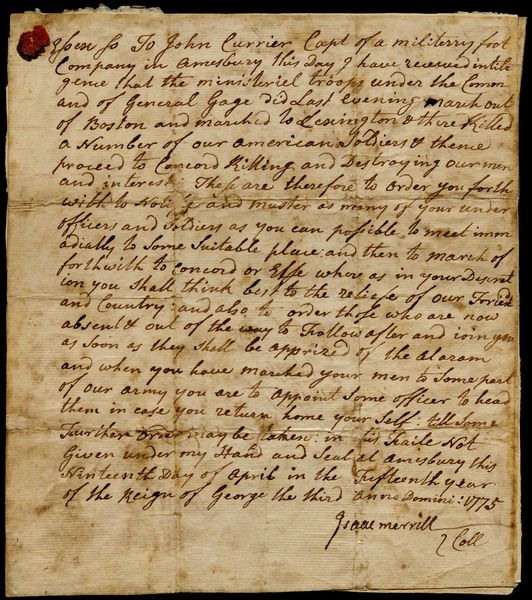 Essex ss To John Currier Capt of a militerry foot
Company in Amesbury this Day I have received intili
gence that the ministeriel troops under the Comm
and of General Gage did Last evening march out
of Boston and marched to Lexington & there Killed
a Number of our american Soldiers & thence
proceed to Concord Killing and Destroying our men
and interest: These are therefore to order you forth
with to Notify and muster as many of your under
officers and Soldiers as you can possible to meet imm
adially to Some Suitable place: and then to march of
forthwith to Concord or Else where as in your Discret
ion you Shall think best to the reliefe of our Friend
and Country: and also to order those who are now
absent & out of the way to Follow after and ioin you
as soon as they shall be apprized of the Alaram
and when you have marched your men to Some part
of our army you are to appoint some officer to head
them in case you return home your Self: till Some
Further Order may be taken: in this Faile Not
Given under my Hand and Seal at Amesbury this
Ninteenth Day of April in the Fifteenth year
of the Reign of George the third Anno Domini: 1775
Isaac merrill
Coll